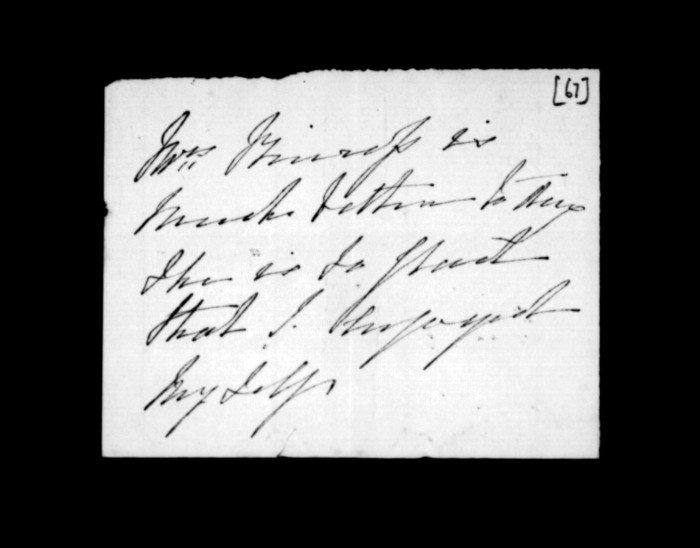 [67]
Mrs Kinross is
much better to day
She is so glad
that I enjoyed
my self